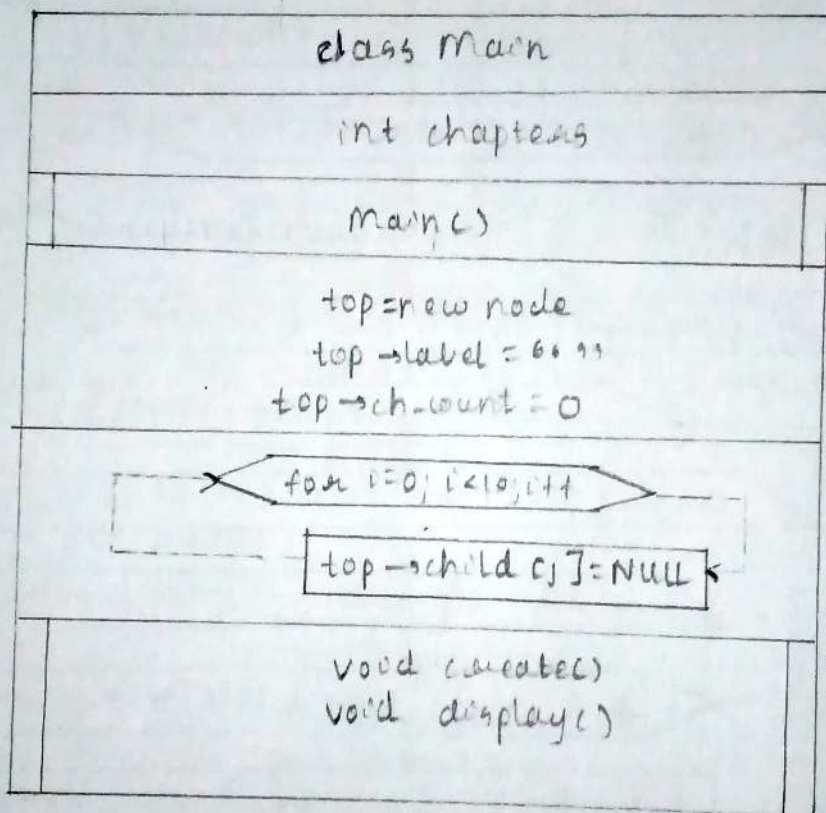 class Main
int chapters
Main()
top=new node
top→label = “ ”
top→ch-count = 0
for i=0; i<10; i++
top→child [j]=NULL
void create()
void display()